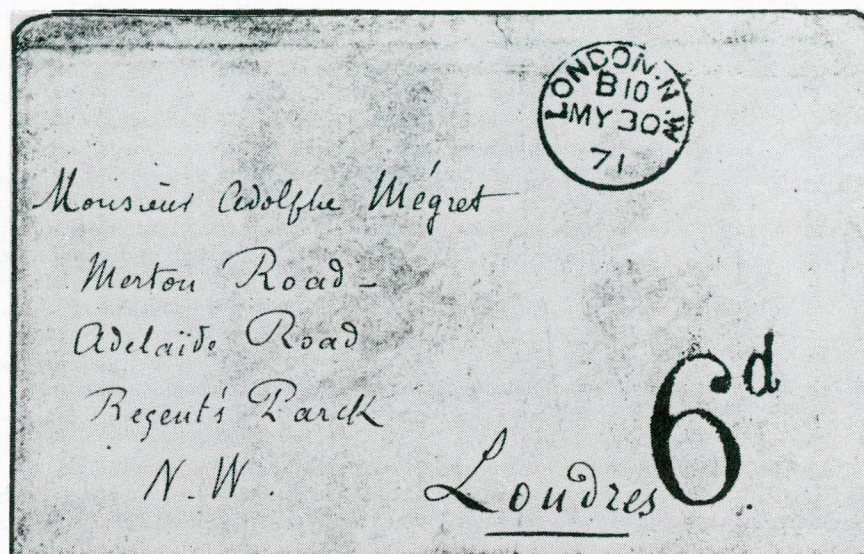 LONDON.N.W
B 10
MY 30
71
Monsieur Adolphe Mégret
Merton Road -
Adelaïde Road
Regent's Parck
N.W.
Londres
6d